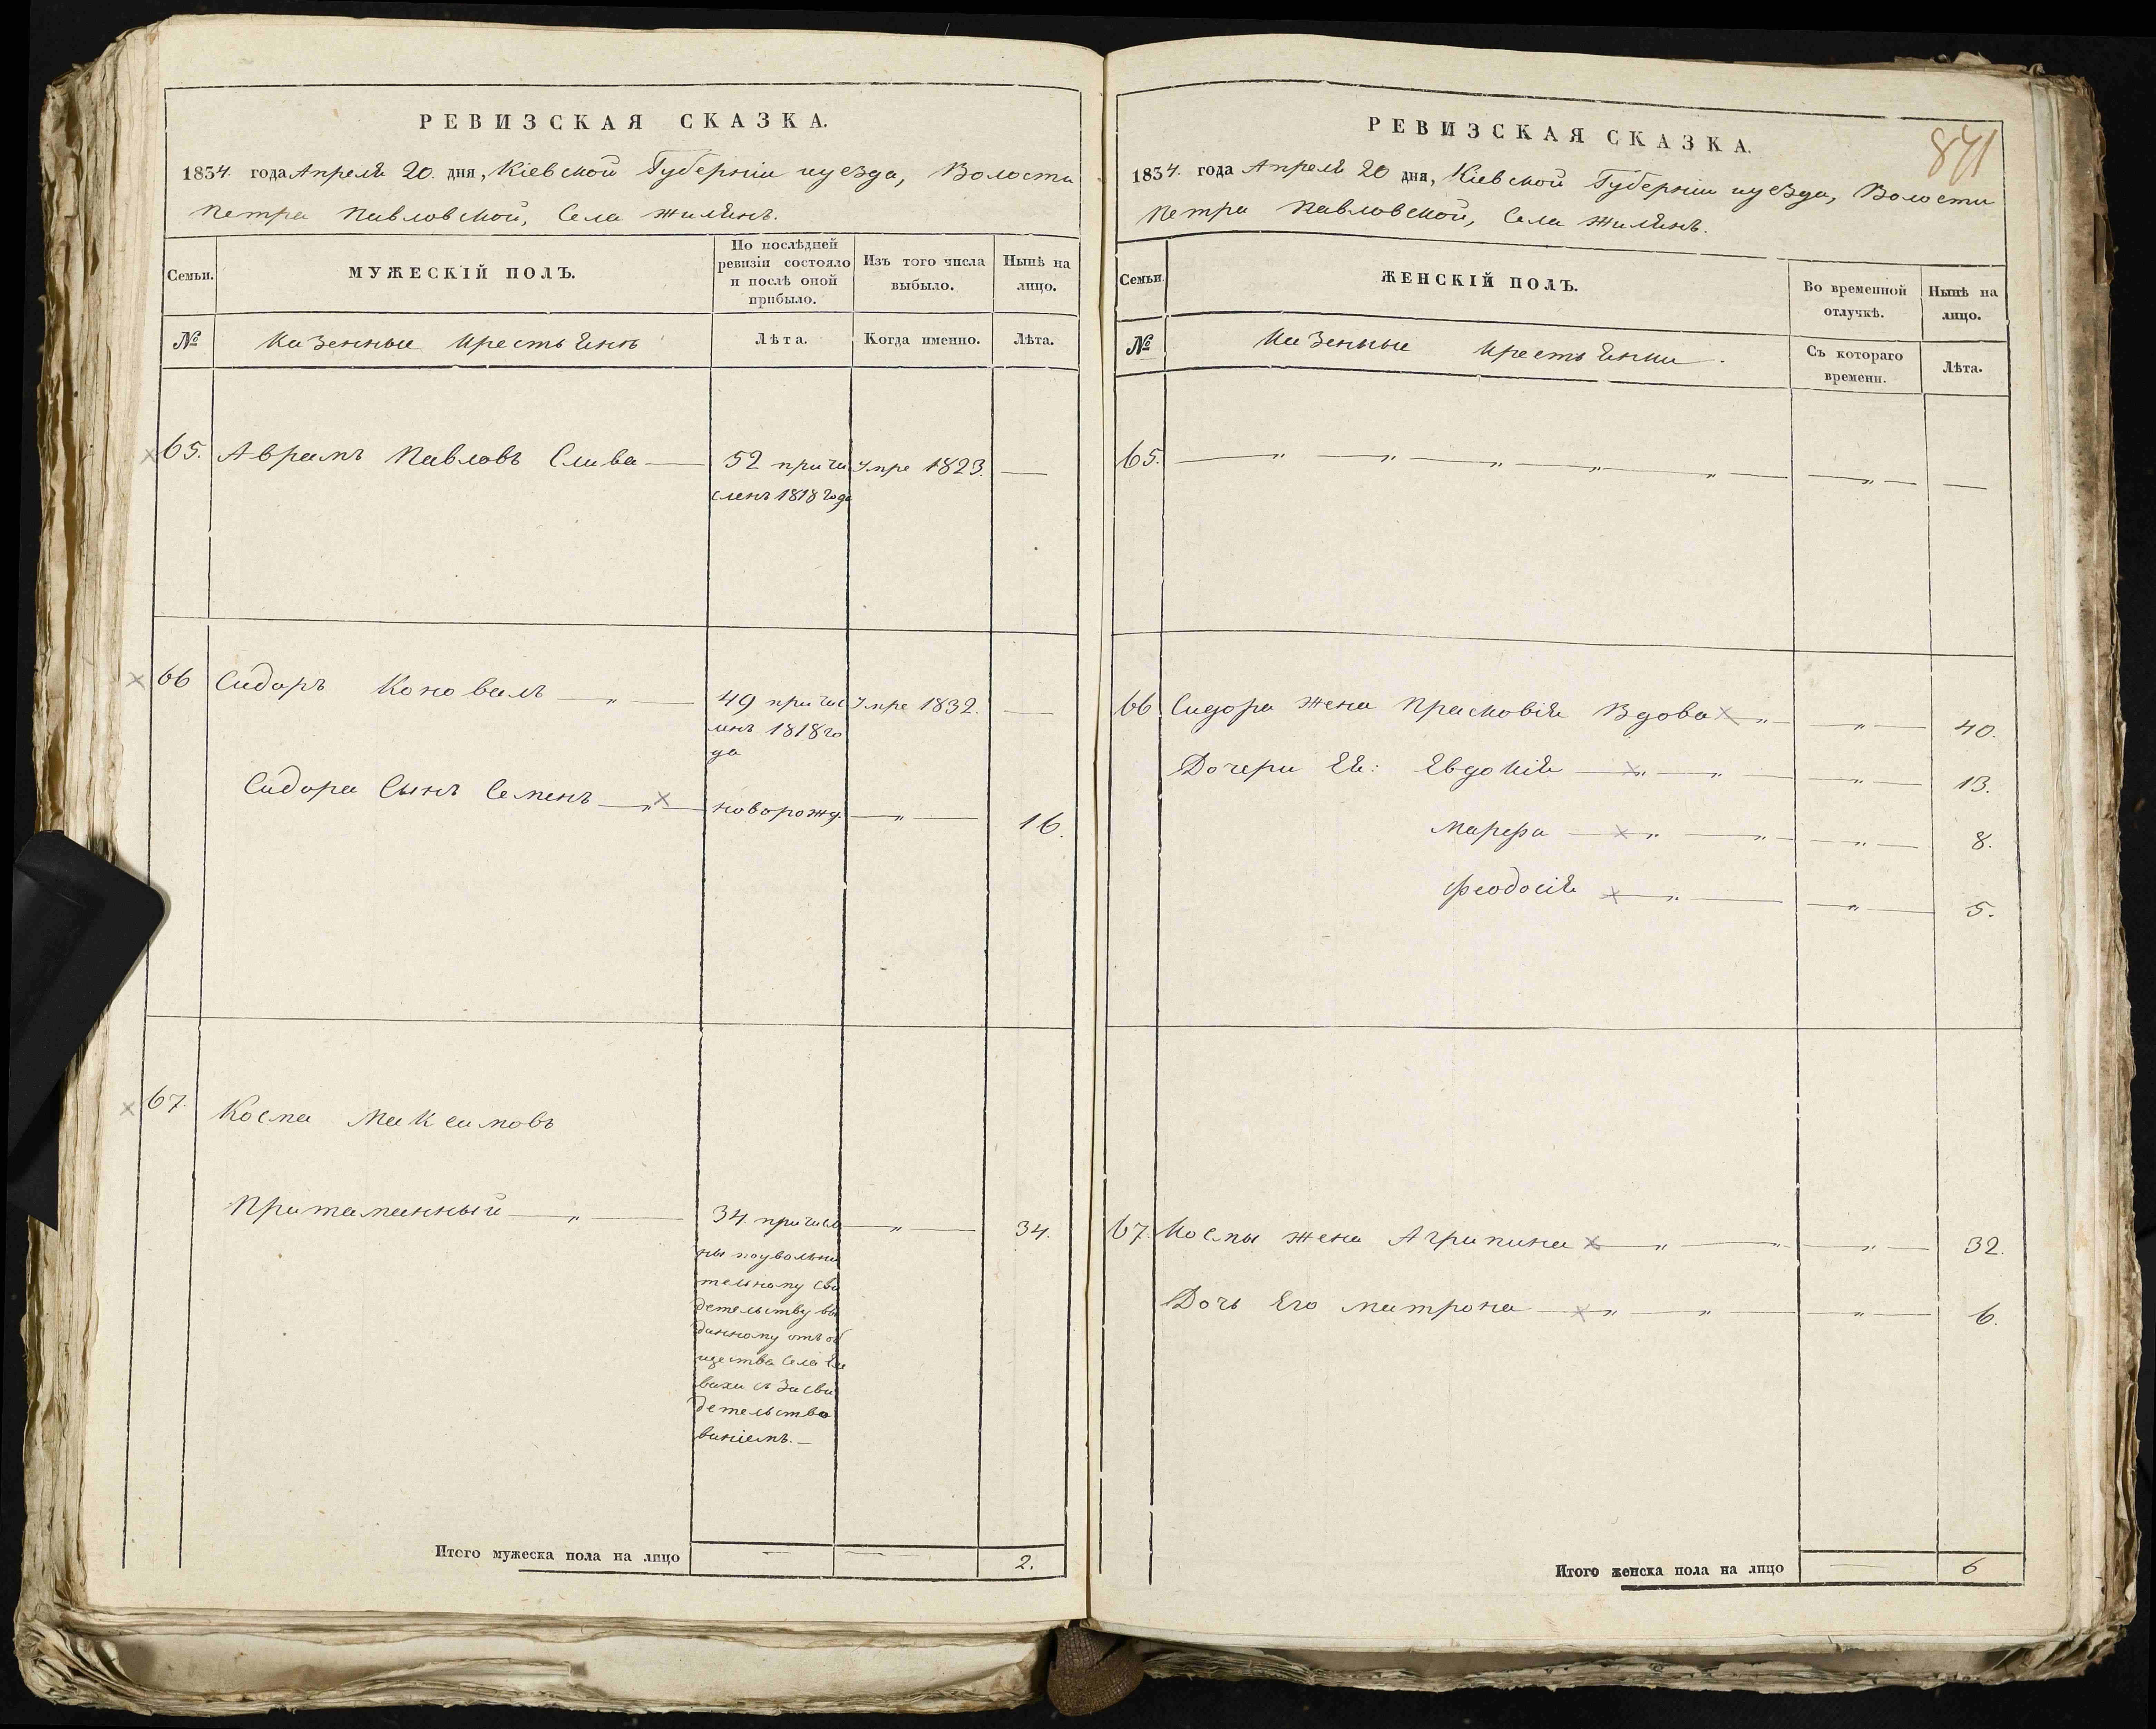 РЕВИЗСКАЯ СКАЗКА.
1834. года Апреля 20. дня, Кіевской Губерніи и уезда, Волости
Петра Павловской, Села Жилянъ.
Семьи.
МУЖЕСКІЙ ПОЛЪ.
По послѣдней
ревизіи состояло
и послѣ оной
прибыло.
Изъ того числа
выбыло.
Нынѣ на
лицо.
№
Казенные Крестьянъ
Лѣта.
Когда именно.
Лѣта.
65. Аврамъ Павловъ Слива 52 причи Умре 1823.
сленъ 1818 года
66 Сидоръ Коновалъ 49 причис Умре 1832.
ленъ 1818 го
да
Сидора Сынъ Семенъ новорожд. 16.
67. Косма Максимовъ
Притаманный 34 причисл 34.
ны поувольни
тельному сви
детельству вы
данному отъ об
щества Села
вахи съ Засви
детельство
ваніемъ.
Итого мужеска пола на лицо 2.
РЕВИЗСКАЯ СКАЗКА.
841
1834. года Апреля 20 дня, Кіевской Губерніи и уезда, Волости
Петра Павловской, Села Жилянъ.
Семьи.
ЖЕНСКІЙ ПОЛЪ.
Во временной
отлучкѣ.
Нынѣ на
лицо.
№
Казенные Крестьянки.
Съ котораго
времени.
Лѣта.
65.
66 Сидора жена Прасковія Вдова 40.
Дочери Ея: Евдокія 13.
Марфа 8.
Феодосія 5.
67. Космы жена Агрипина 32.
Дочь Его Матрона 6.
Итого женска пола на лицо 6